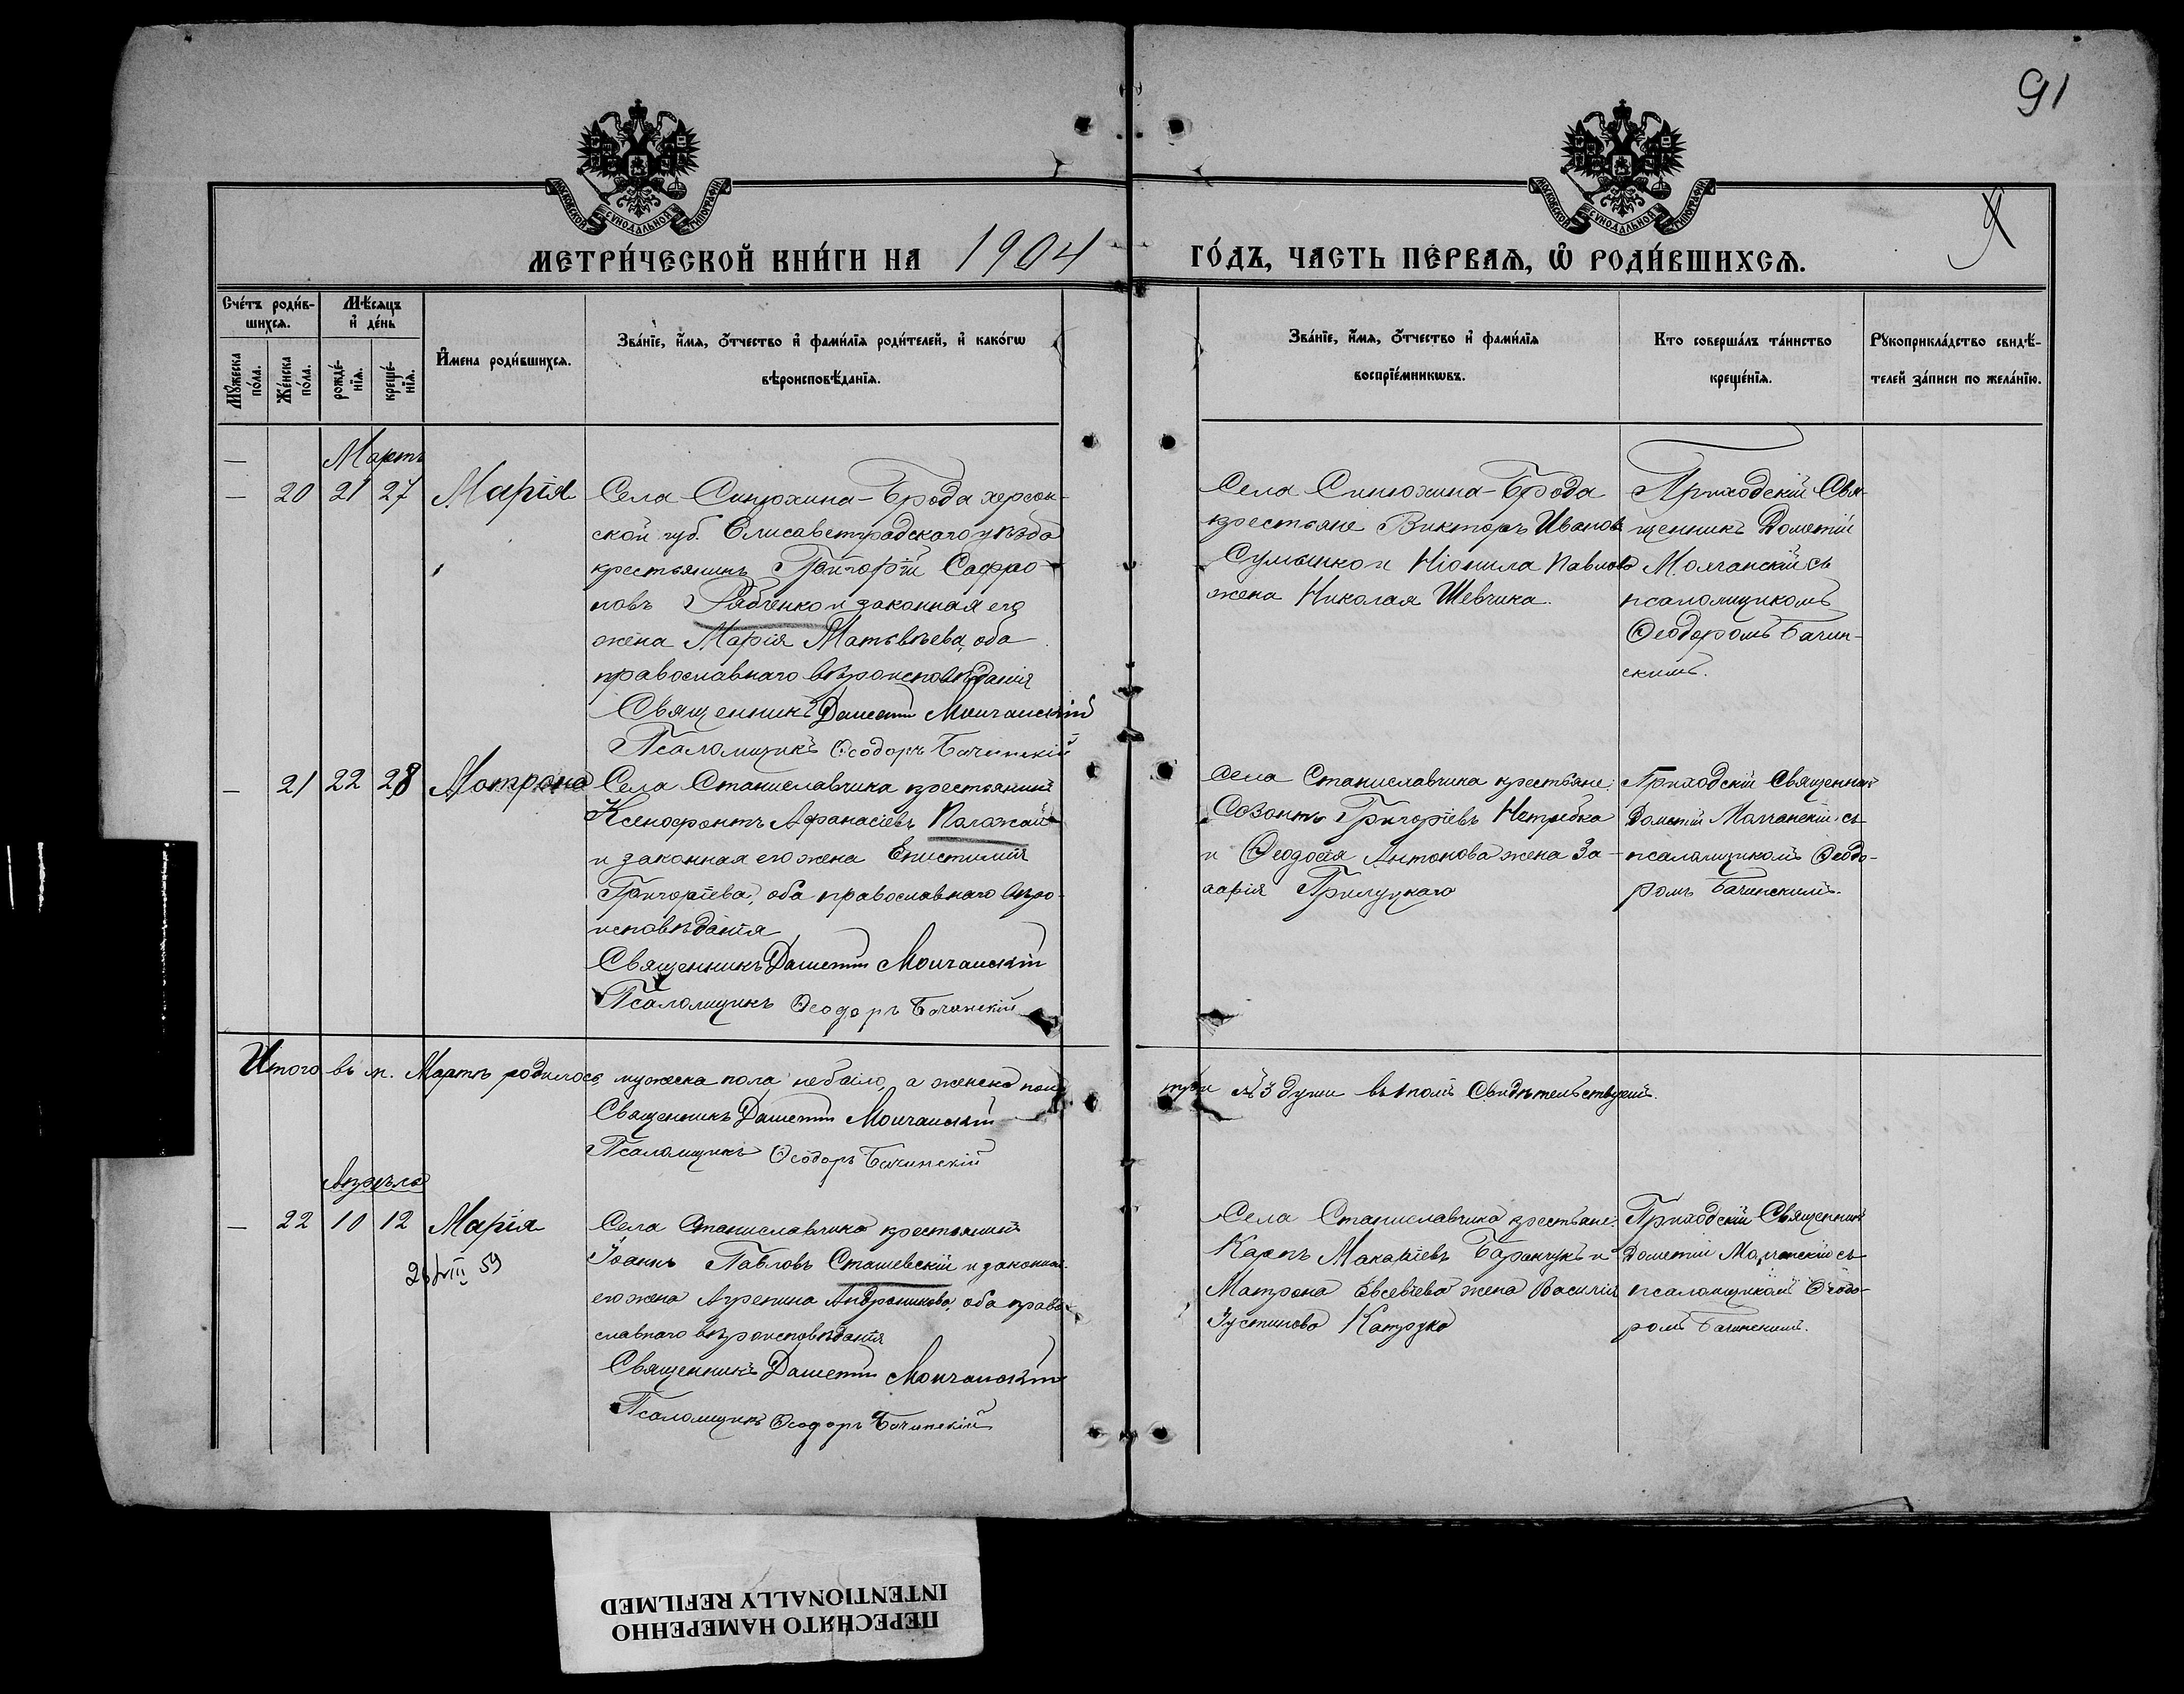 91
9
МОСКОВСКОЙ СѴНОДАЛЬНОЙ ТИПОГРАФІИ
МОСКОВСКОЙ СѴНОДАЛЬНОЙ ТИПОГРАФІИ
МЕТРИ́ЧЕСКОЙ КНИ́ГИ НА 1904 ГО́ДЪ, ЧАСТЬ ПЕ́РВАѦ, Ѡ҆ РОДИ́ВШИХСѦ.
Сче́тъ роди́в-
шихсѧ.
Мꙋ́жеска по́ла.
Же́нска по́ла.
Мѣ́сѧцъ
и҆ де́нь
рожде́-
нїѧ.
креще́-
нїѧ.
И҆мена роди́вшихсѧ.
Зва́нїе, и҆́мѧ, ѻ҆́тчество и҆ фами́лїѧ роди́телей, и҆ како́гѡ
вѣроисповѣ́данїѧ.
Зва́нїе, и҆́мѧ, ѻ҆́тчество и҆ фами́лїѧ
воспрїе́мникѡвъ.
Кто соверша́лъ та́инство
креще́нїѧ.
Рꙋкоприкла́дство свидѣ́-
телей за́писи по жела́нїю.
Мартъ
— 20 21 27 Марія
Села Синюхина-Брода херсон-
ской губ. Елисаветградскаго уѣзда
крестьянинъ Григорій Сафро-
новъ Рябченко и законная его
жена Марія Матвѣева, оба
православнаго вѣроисповѣданія
Священникъ Дометій Молчанскій
Псаломщикъ Ѳеодоръ Бачинскій
Села Синюхина-Брода
крестьяне Викторъ Иванов
Сулыненко и Ніонила Павлова
жена Николая Шевчика.
Приходскій Свя-
щенникъ Дометій
Молчанскій съ
псаломщикомъ
Ѳеодоромъ Бачин-
скимъ.
— 21 22 28 Матрона
Села Станиславчика крестьянинъ
Ксенофонтъ Афанасіевъ Паламай
и законная его жена Епистимія
Григоріева, оба православнаго вѣро-
исповѣданія
Священникъ Дометій Молчанскій
Псаломщикъ Ѳеодоръ Бачинскій
Села Станиславчика крестьяне:
Созонтъ Григоріевъ Нетребка
и Ѳеодосія Антонова жена За-
харія Прилуцкаго
Приходскій Священникъ
Дометій Молчанскій съ
псаломщикомъ Ѳеодо-
ромъ Бачинскимъ.
Итого въ м. Мартѣ родилось мужеска пола небыло, а женска пола три 3 души въ томъ свидѣтельствуемъ.
Священникъ Дометій Молчанскій
Псаломщикъ Ѳеодоръ Бачинскій
Апрѣль
— 22 10 12 Марія
26/VIII 59
Села Станиславчика крестьянинъ
Іоаннъ Павловъ Сташевскій и законная
его жена Агрепина Андроникова, оба право-
славнаго вѣроисповѣданія
Священникъ Дометій Молчанскій
Псаломщикъ Ѳеодоръ Бачинскій
Села Станиславчика крестьяне:
Карпъ Макаріевъ Баранчукъ и
Матрона Евсевіева жена Василія
Іустинова Катрука
Приходскій Священникъ
Дометій Молчанскій съ
псаломщикомъ Ѳеодо-
ромъ Бачинскимъ.
ПЕРЕСНЯТО НАМЕРЕННО
INTENTIONALLY REFILMED